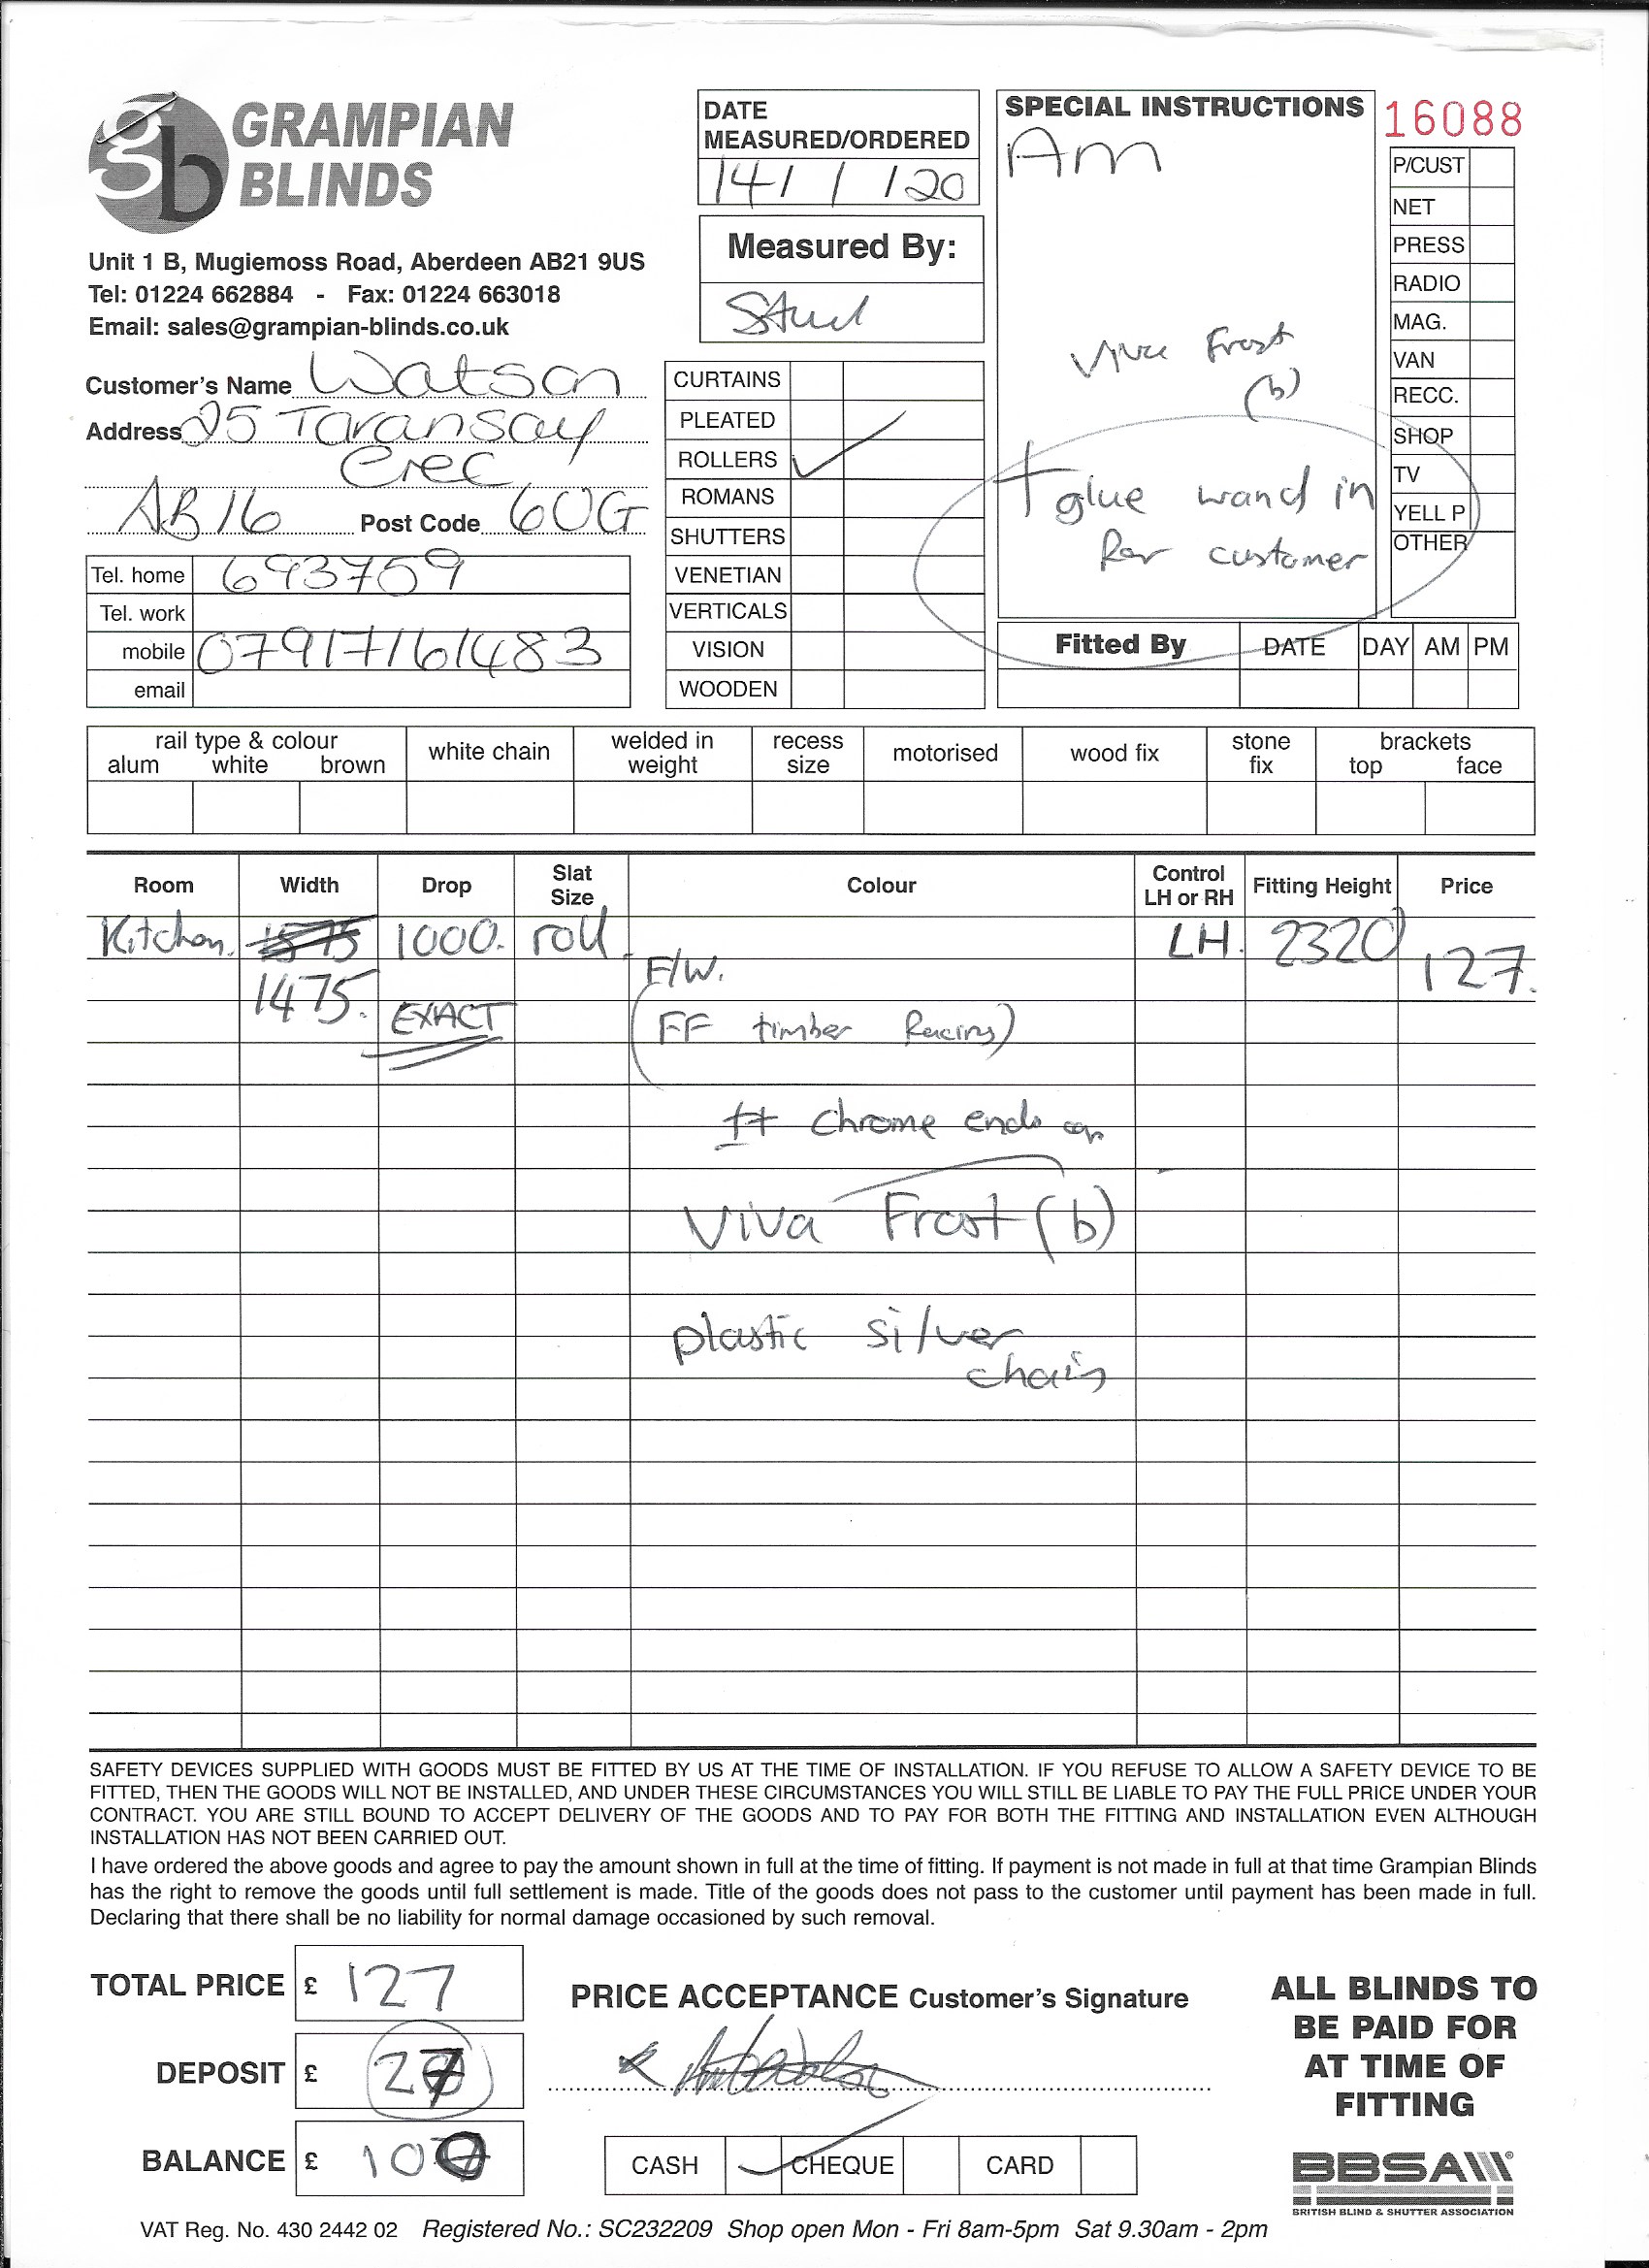 gb GRAMPIAN
BLINDS
Unit 1 B, Mugiemoss Road, Aberdeen AB21 9US
Tel: 01224 662884 - Fax: 01224 663018
Email: sales@grampian-blinds.co.uk
Customer's Name Watson
Address 25 Taransay
Cres
AB16 Post Code 6UG
Tel. home 693759
Tel. work
mobile 07917161483
email
DATE
MEASURED/ORDERED
14/ 1 /20
Measured By:
CURTAINS
PLEATED
ROLLERS ✓
ROMANS
SHUTTERS
VENETIAN
VERTICALS
VISION
WOODEN
SPECIAL INSTRUCTIONS
Am
Viva Frost
(b)
+ glue wand in
for customer
16088
P/CUST
NET
PRESS
RADIO
MAG.
VAN
RECC.
SHOP
TV
YELL P
OTHER
Fitted By DATE DAY AM PM
rail type & colour white chain welded in weight recess size motorised wood fix stone fix brackets
alum white brown top face
Room Width Drop Slat Size Colour Control LH or RH Fitting Height Price
Kitchen. 1575 1000. roll LH. 2320 127.
1475. EXACT F/W.
(FF timber facing)
++ chrome ends
Viva Frost (b)
plastic silver
chain
SAFETY DEVICES SUPPLIED WITH GOODS MUST BE FITTED BY US AT THE TIME OF INSTALLATION. IF YOU REFUSE TO ALLOW A SAFETY DEVICE TO BE
FITTED, THEN THE GOODS WILL NOT BE INSTALLED, AND UNDER THESE CIRCUMSTANCES YOU WILL STILL BE LIABLE TO PAY THE FULL PRICE UNDER YOUR
CONTRACT. YOU ARE STILL BOUND TO ACCEPT DELIVERY OF THE GOODS AND TO PAY FOR BOTH THE FITTING AND INSTALLATION EVEN ALTHOUGH
INSTALLATION HAS NOT BEEN CARRIED OUT.
I have ordered the above goods and agree to pay the amount shown in full at the time of fitting. If payment is not made in full at that time Grampian Blinds
has the right to remove the goods until full settlement is made. Title of the goods does not pass to the customer until payment has been made in full.
Declaring that there shall be no liability for normal damage occasioned by such removal.
TOTAL PRICE £ 127
DEPOSIT £ 27
BALANCE £ 100
PRICE ACCEPTANCE Customer's Signature
CASH ✓ CHEQUE CARD
ALL BLINDS TO
BE PAID FOR
AT TIME OF
FITTING
BBSA
BRITISH BLIND & SHUTTER ASSOCIATION
VAT Reg. No. 430 2442 02 Registered No.: SC232209 Shop open Mon - Fri 8am-5pm Sat 9.30am - 2pm